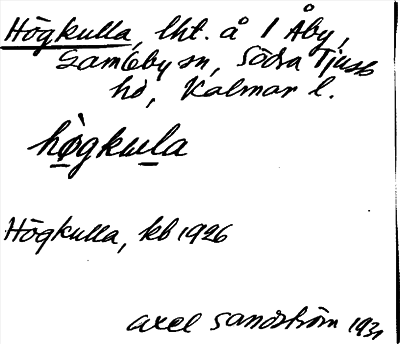 Högkulla, lht. å 1 Åby,
Gamleby sn, Södra Tjusts
hd, Kalmar l.
högkula
Högkulla, kb 1926
Axel Sandström 1931